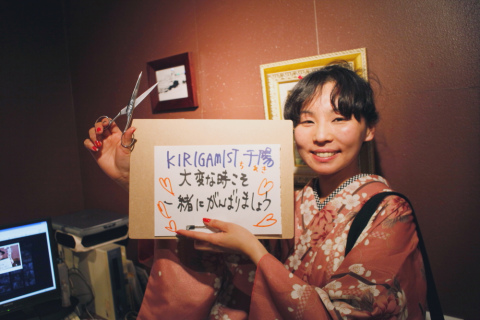 KIRIGAMIST 千陽
ち あき
大変な時こそ
一緒にがんばりましょう